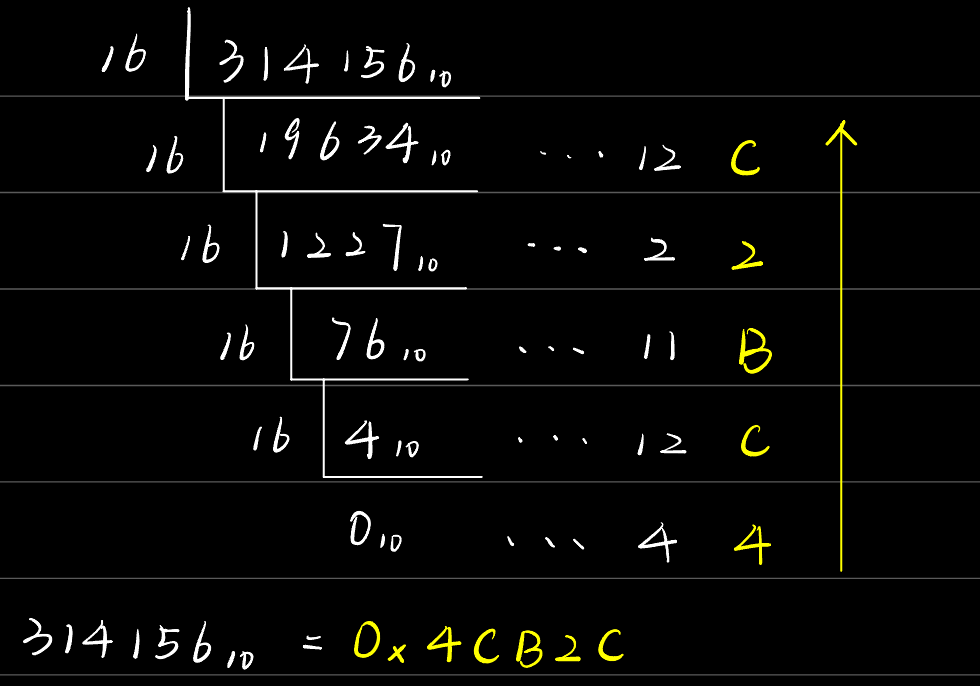 16 314156₁₀
16 19634₁₀ ... 12 C
16 1227₁₀ ... 2 2
16 76₁₀ ... 11 B
16 4₁₀ ... 12 C
0₁₀ ... 4 4
314156₁₀ = 0x4CB2C